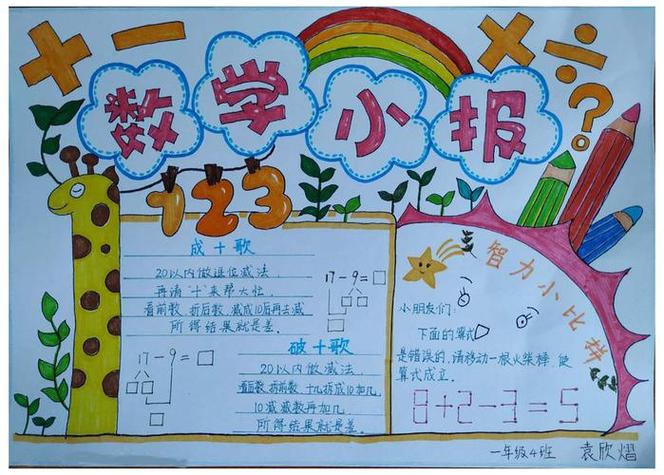 数学小报
123
成十歌
20以内做退位减法
再请"十"来帮大忙
看前数,拆后数,减成10后再去减
所得结果就是差.
17-9=□
破十歌
20以内做减法
看后数,拆前数,十几拆成10加几,
10减减数再加几,
所得结果就是差.
17-9=□
智力小比拼
小朋友们:
下面的算式
是错误的,请移动一根火柴棒,使
算式成立.
8+2-3=5
一年级4班 袁欣熠